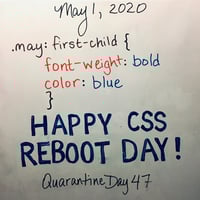 May 1, 2020
.may:first-child {
font-weight: bold
color: blue
}
HAPPY CSS
REBOOT DAY!
Quarantine Day 47